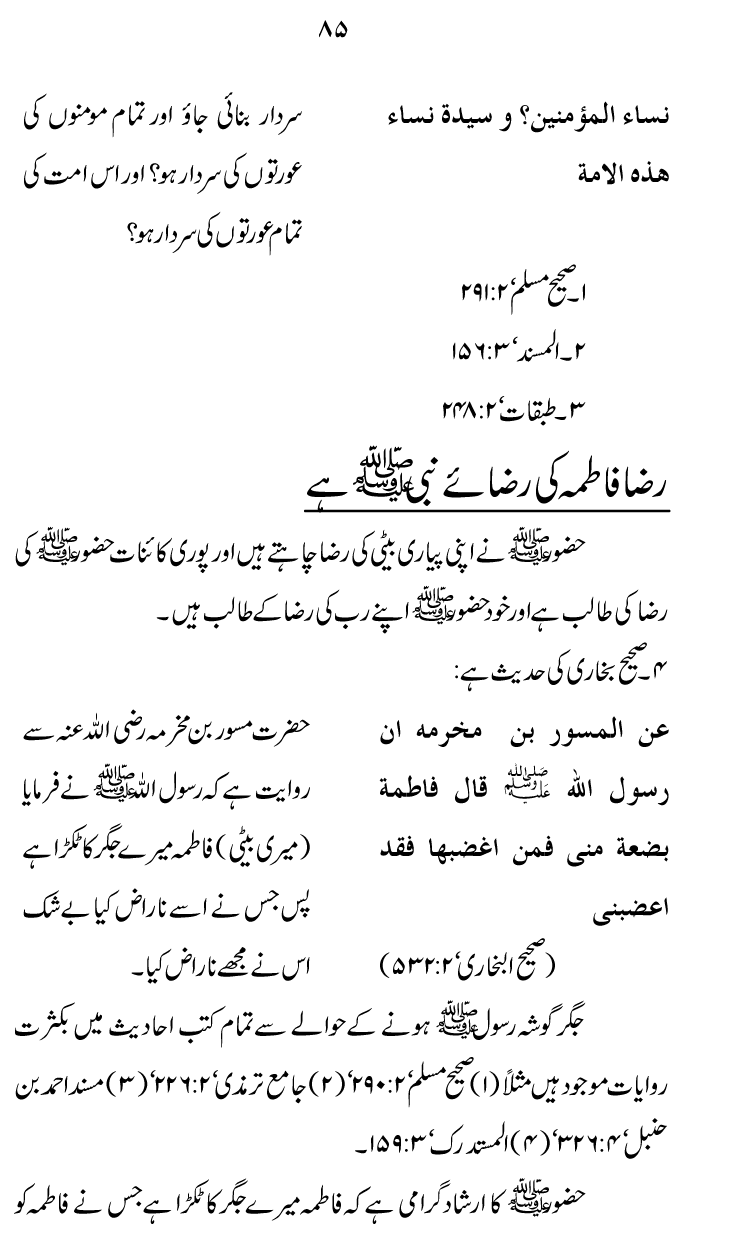 ۸۵
نساء المؤمنین؟ و سیدة نساء
ھذہ الامة
سردار بنائی جاؤ اور تمام مومنوں کی
عورتوں کی سردار ہو؟ اور اس امت کی
تمام عورتوں کی سردار ہو؟
۱۔صحیح مسلم‘ ۲:۲۹۱
۲۔المسند‘ ۳:۱۵۶
۳۔طبقات‘ ۲:۲۴۸
رضا فاطمہ کی رضائے نبی ﷺ ہے
حضور ﷺ نے اپنی پیاری بیٹی کی رضا چاہتے ہیں اور پوری کائنات حضور ﷺ کی
رضا کی طالب ہے اور خود حضور ﷺ اپنے رب کی رضا کے طالب ہیں۔
۴۔صحیح بخاری کی حدیث ہے:
عن المسور بن مخرمہ ان
رسول اللہ ﷺ قال فاطمة
بضعة منی فمن اغضبھا فقد
اعضبنی
(صحیح البخاری‘ ۲:۵۳۲)
حضرت مسور بن مخرمہ رضی اللہ عنہ سے
روایت ہے کہ رسول اللہ ﷺ نے فرمایا
(میری بیٹی) فاطمہ میرے جگر کا ٹکڑا ہے
پس جس نے اسے ناراض کیا بے شک
اس نے مجھے ناراض کیا۔
جگر گوشہ رسول ﷺ ہونے کے حوالے سے تمام کتب احادیث میں بکثرت
روایات موجود ہیں مثلاً (۱) صحیح مسلم‘ ۲:۲۹۰‘ (۲) جامع ترمذی‘ ۲:۲۲۶‘ (۳) مسند احمد بن
حنبل‘ ۴:۳۲۶‘ (۴) المستدرک‘ ۳:۱۵۹۔
حضور ﷺ کا ارشاد گرامی ہے کہ فاطمہ میرے جگر کا ٹکڑا ہے جس نے فاطمہ کو